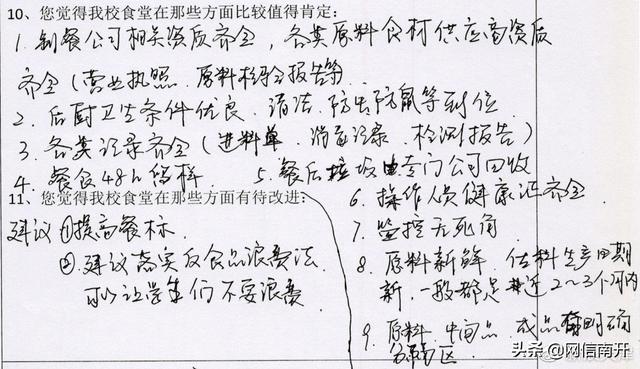 10、您觉得我校食堂在那些方面比较值得肯定:
1. 制餐公司相关资质齐全，各类原料食材供应商资质
齐全（营业执照、原料检验报告等）
2. 后厨卫生条件优良、清洁、防虫防鼠等到位
3. 各类记录齐全（进料单、消毒记录、检测报告）
4. 餐食48h留样
5. 餐后垃圾由专门公司回收
6. 操作人员健康证齐全
7. 监控无死角
8. 原料新鲜、佐料生产日期
新，一般都是近2~3个月内
9. 原料、中间品、成品有明确
分隔区
11、您觉得我校食堂在那些方面有待改进:
建议①提高餐标
②建议落实反食品浪费法
可以让学生们不要浪费
头条 @网信南开